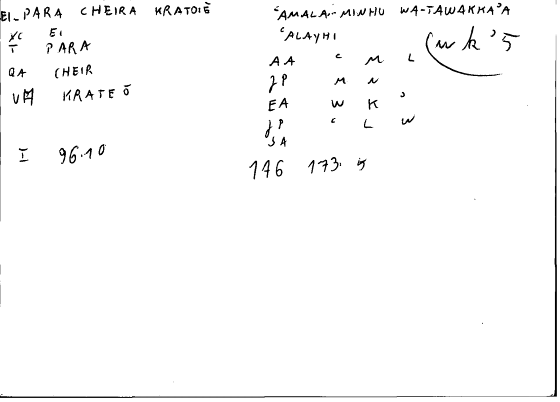 EI_PARA CHEIRA KRATOIĒ
XC EI
T PARA
QA CHEIR
VA KRATEŌ
I 96.10
ʿAMALA_MINHU WA-TAWAKKAʾA
ʿALAYHI
(wkʾ5
AA ʿ M L
JP M N
EA W K ʾ
JP ʿ L W
SA
146 173.